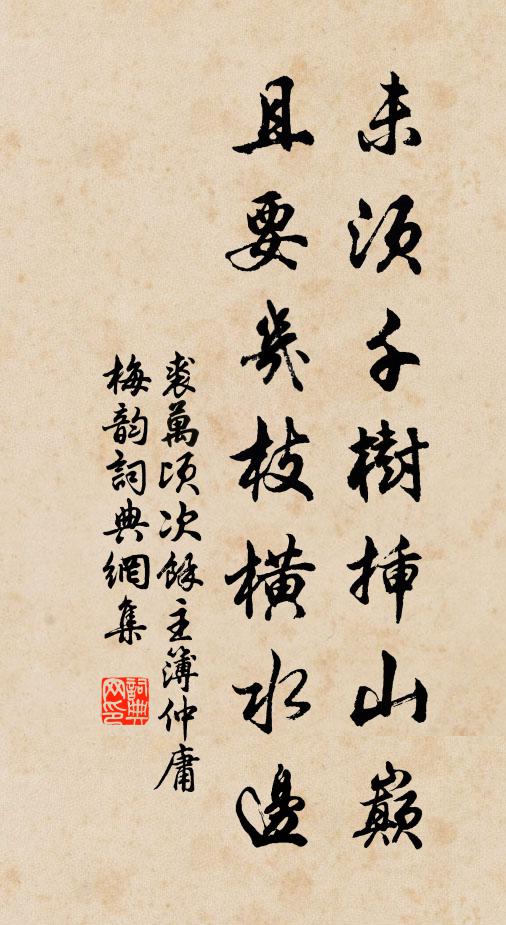 未須千樹插山巔
且要幾枝橫水邊
裘萬頃次餘主簿仲庸
梅韵詞典網集
詞典網印